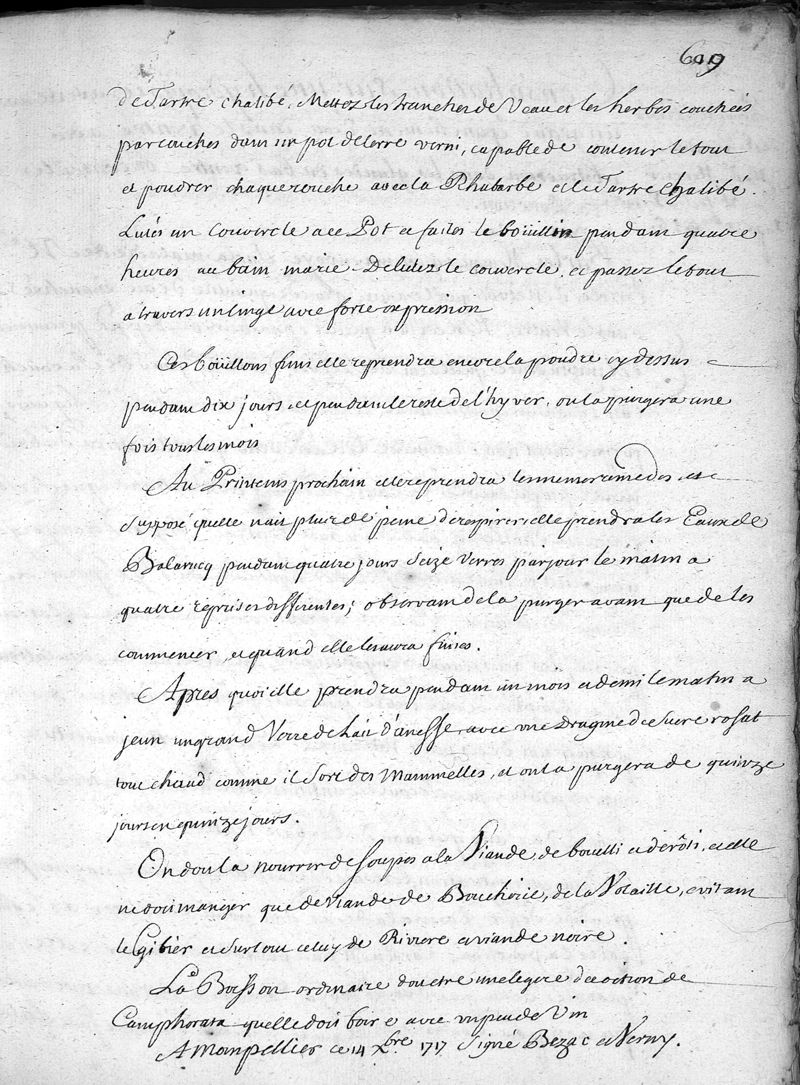 609
de Tartre chalibé. Mettez les tranches de Veau et les herbes couchées
par couches dans un pot de terre verni, capable de contenir le tout
et poudrer chaque couche avec la Rhubarbe et le Tartre chalibé.
Lutés un Couvercle a ce Pot et faites le boüillir pendant quatre
heures au bain marie. Delutez le couvercle, et passez le tout
a travers un linge avec forte expression
Ces boüillons finis elle reprendra encore la poudre cy dessus
pendant dix jours, et pendant le reste de l'hyver, on la purgera une
fois tous les mois
Au Printems prochain elle reprendra les memes remedes, et
supposé quelle n'ait plus de peine de respirer, elle prendra les Eaux de
Balarucq pendant quatre jours Seize Verres par jour le matin a
quatre reprises differentes; observant de la purger avant que de les
commencer, et quand elle les aura finies.
Après quoi elle prendra pendant un mois et demi le matin a
jeun un grand Verre de Lait d'anesse, avec une Dragme de Sucre rosat
tout chaud comme il sort des Mammelles, et on la purgera de quinze
jours en quinze jours.
On doit la nourrir de soupes a la Viande, de bouilli et de rôti, et elle
ne doit manger que de Viande de Boucherie, de la Volaille, evitant
le Gibier et surtout celuy de Riviere et viande noire.
La Boisson ordinaire doit etre une legere decoction de
Camphorata quelle doit boire avec un peu de Vin
A Monpellier ce 14 Xbre 1717 Signé Bezac et Verny.